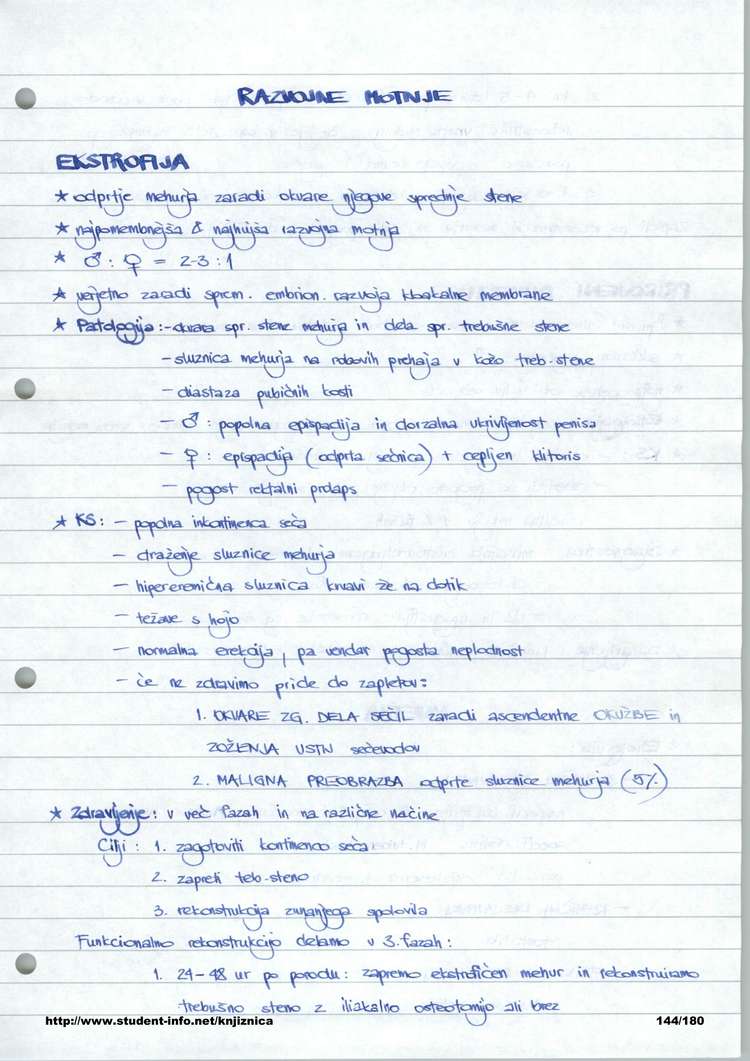 RAZVOJNE MOTNJE
EKSTROFIJA
* odprtje mehurja zaradi okvare njegove sprednje stene
* najpomembnejša & najhujša razvojna motnja
* ♂ : ♀ = 2-3 : 1
* verjetno zaradi sprem. embrion. razvoja kloakalne membrane
* Patologija : - okvara spr. stene mehurja in dela spr. trebušne stene
- sluznica mehurja na robovih prehaja v kožo treb. stene
- diastaza pubičnih kosti
- ♂ : popolna epispadija in dorzalna ukrivljenost penisa
- ♀ : epispadija (odprta sečnica) + cepljen klitoris
- pogost rektalni prolaps
* KS : - popolna inkontinenca seča
- draženje sluznice mehurja
- hiperemična sluznica krvavi že na dotik
- težave s hojo
- normalna erekcija, pa vendar pogosta neplodnost
- če ne zdravimo pride do zapletov :
1. OKVARE ZG. DELA SEČIL zaradi ascendentne OKUŽBE in
ZOŽENJA USTIJ sečevodov
2. MALIGNA PREOBRAZBA odprte sluznice mehurja (5%)
* Zdravljenje : v več fazah in na različne načine
Cilji : 1. zagotoviti kontinenco seča
2. zapreti treb. steno
3. rekonstrukcija zunanjega spolovila
Funkcionalno rekonstrukcijo delamo v 3. fazah :
1. 24-48 ur po porodu : zapremo ekstrofičen mehur in rekonstruiramo
trebušno steno z iliakalno osteotomijo ali brez
http://www.student-info.net/knjiznica 144/180